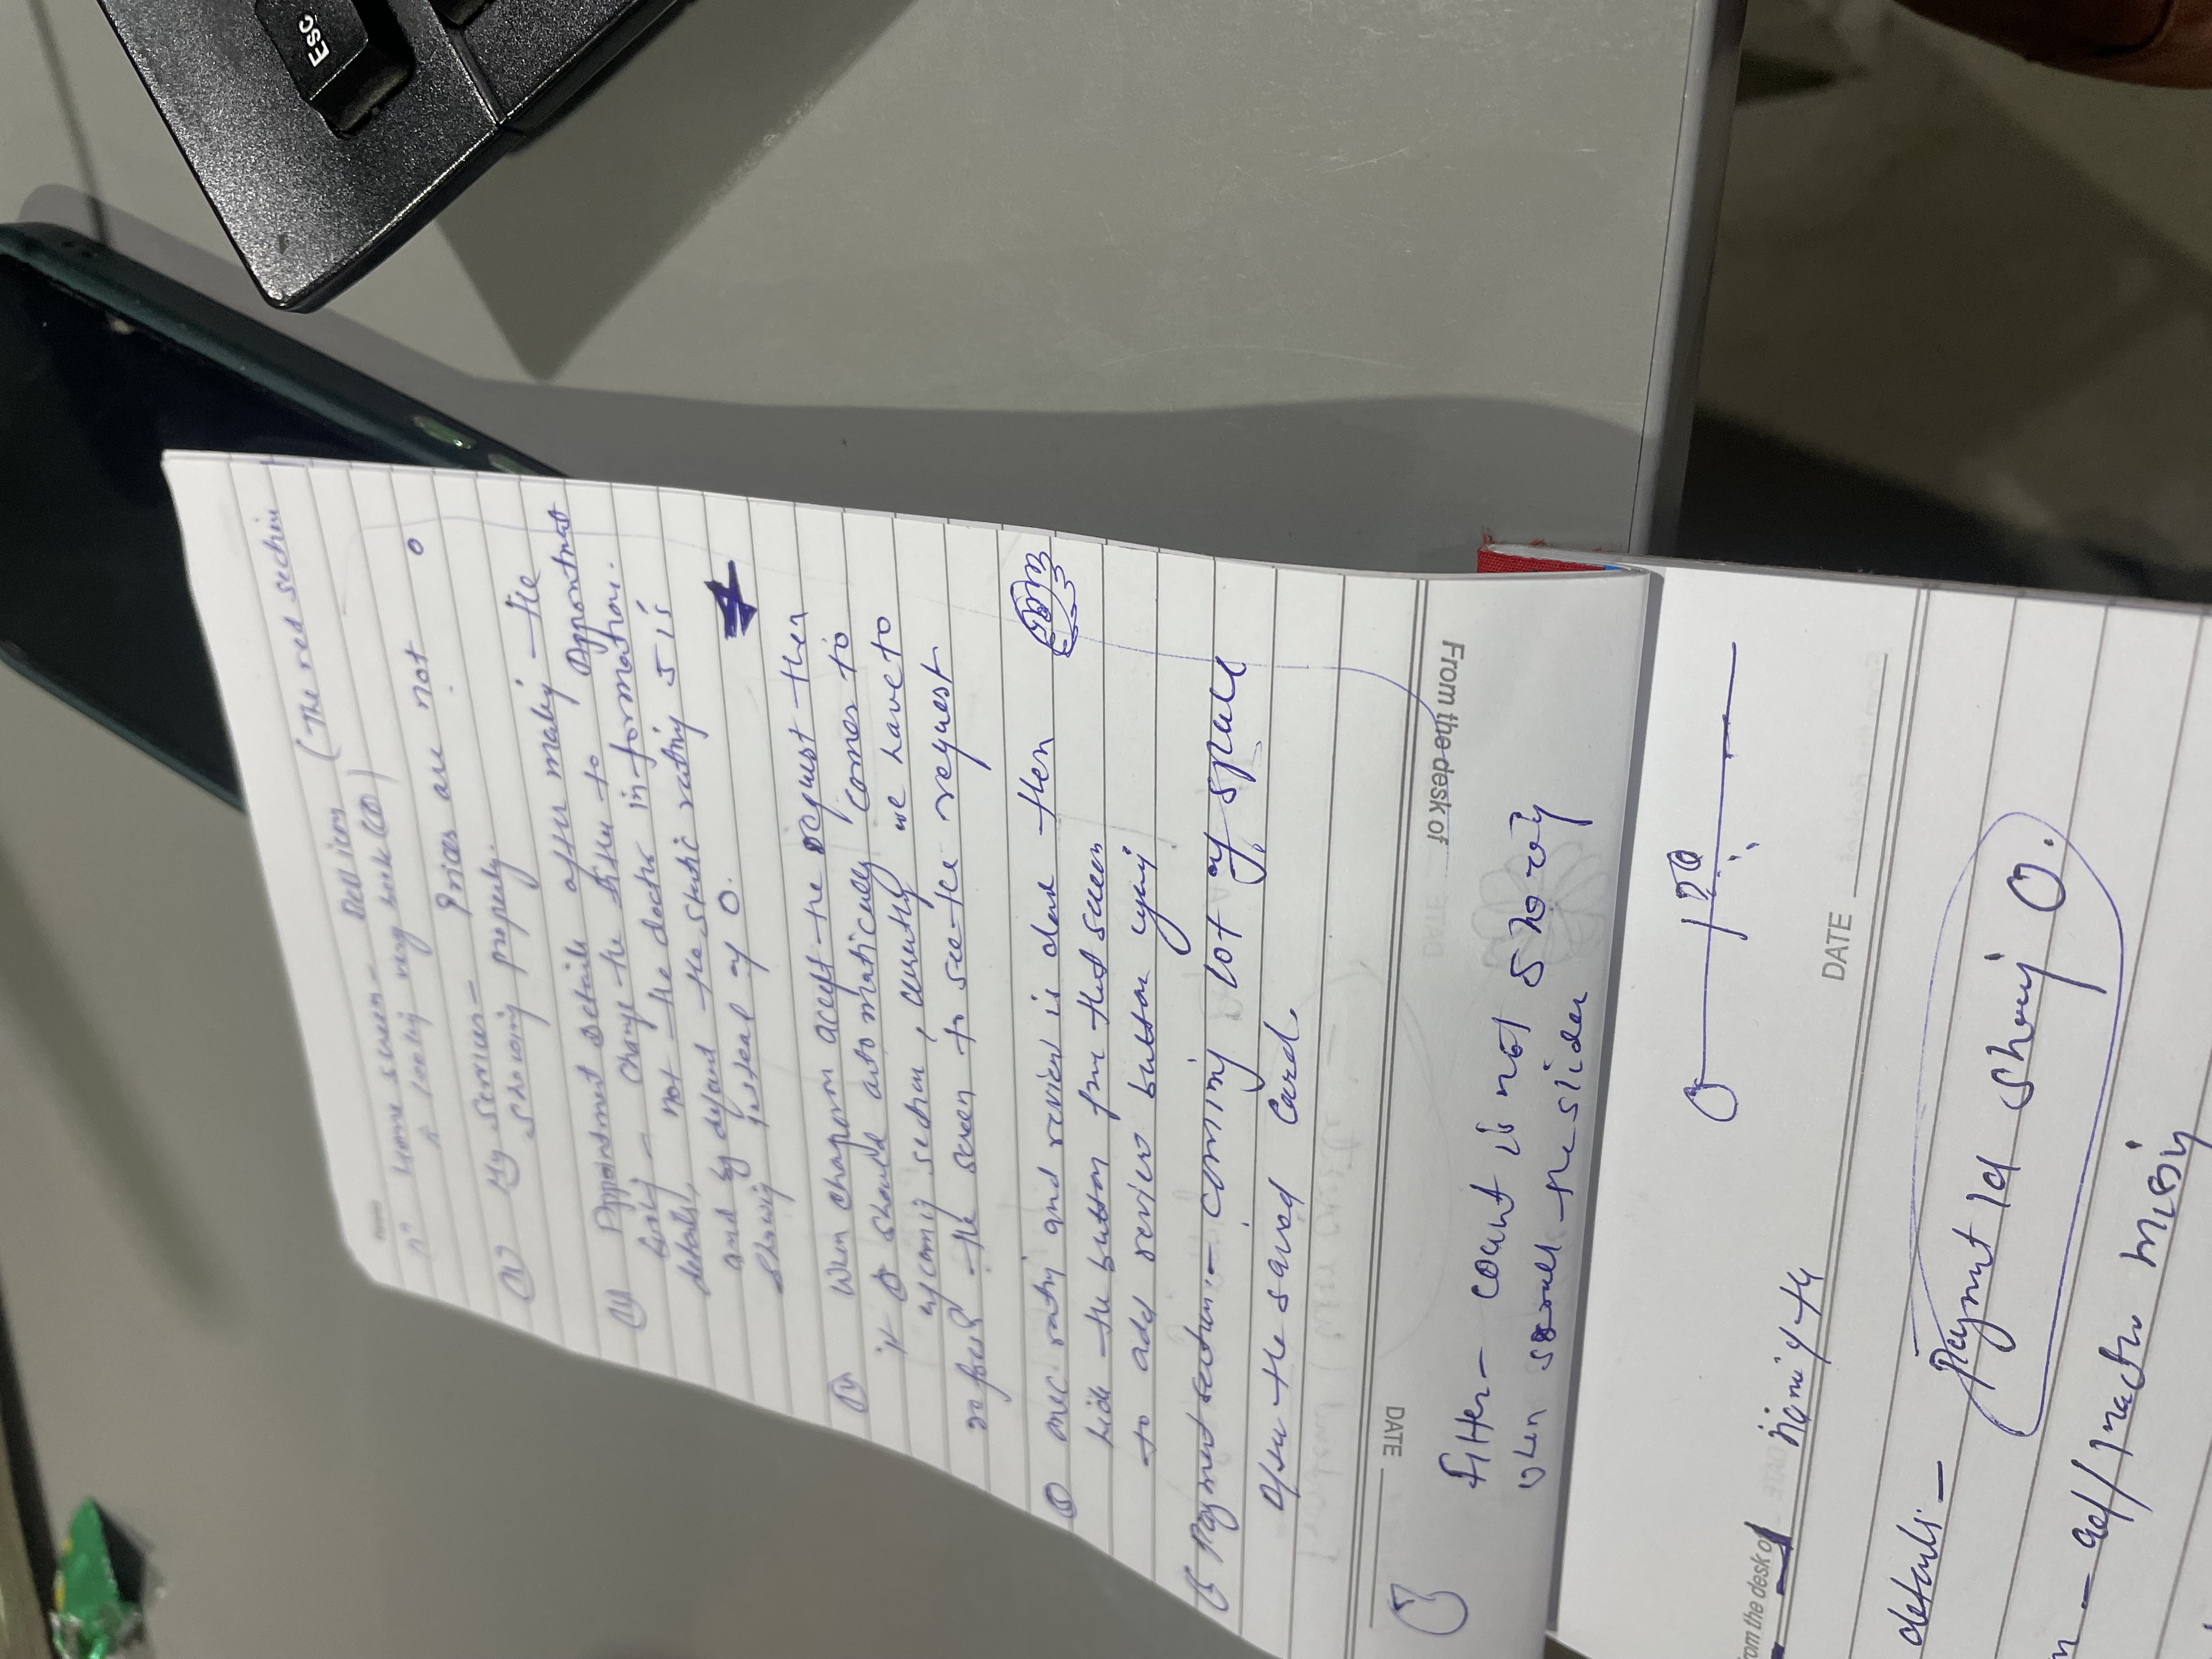 Home screen - Bell icon (The red section
is looking very bulk(CO)
My services - Prices are not
showing properly.
Appointment Details after making the
Going - Change the title to Appointment
not the doctor information.
details,
and by default the static rating 5 is
showing instead of 0.
When chaperon accept the request then
it should automatically comes to
upcoming section, currently we have to
refresh the screen to see the request
once rating and review is done then
hide the button from that screen
to add review button again
Payment section:- coming lot of space
after the saved card.
From the desk of
DATE
filter - count is not showing
when scroll the slider
0 120
from the desk of
DATE
details -
Payment id showing 0.
missing
ESC